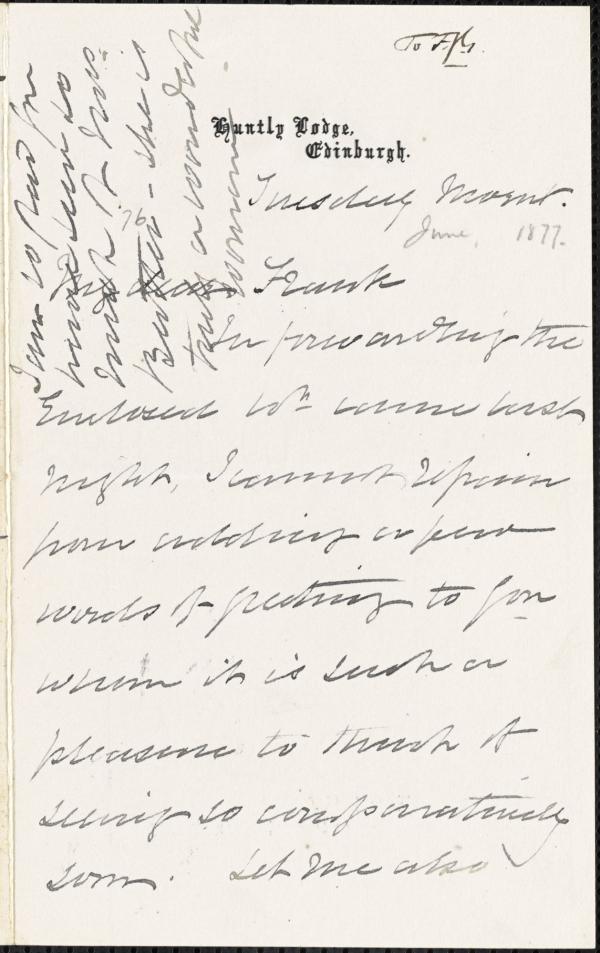 To FJG.
Huntly Lodge,
Edinburgh.
Tuesday Morng.
June, 1877.
76
My dear Frank
In forwarding the
Enclosed wh came last
night, I cannot refrain
from adding a few
words of greeting to you
whom it is such a
pleasure to think of
seeing so comparatively
soon. Let me also
I am so glad
have been so
much of Mrs.
she is
truly a wonderful
woman.